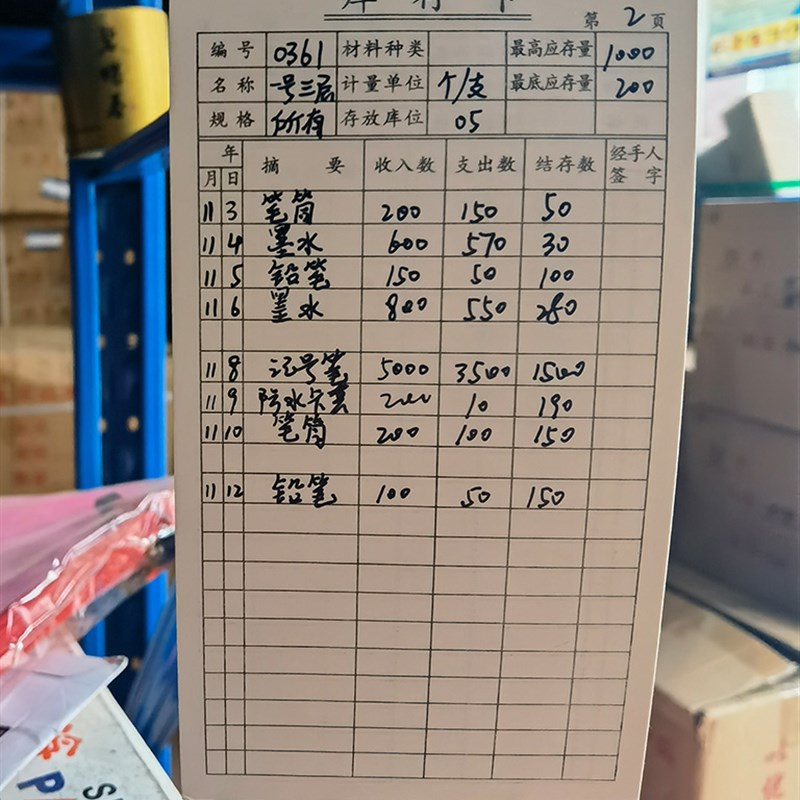 库存卡
第 2 页
编号 0361 材料种类 最高应存量 1000
名称 一号三层 计量单位 个/支 最底应存量 200
规格 所有 存放库位 05
年 摘要 收入数 支出数 结存数 经手人
月 日 签字
11 3 笔筒 200 150 50
11 4 墨水 600 570 30
11 5 铅笔 150 50 100
11 6 墨水 800 550 280
11 8 记号笔 5000 3500 1500
11 9 防水卡套 200 10 190
11 10 笔筒 200 100 150
11 12 铅笔 100 50 150